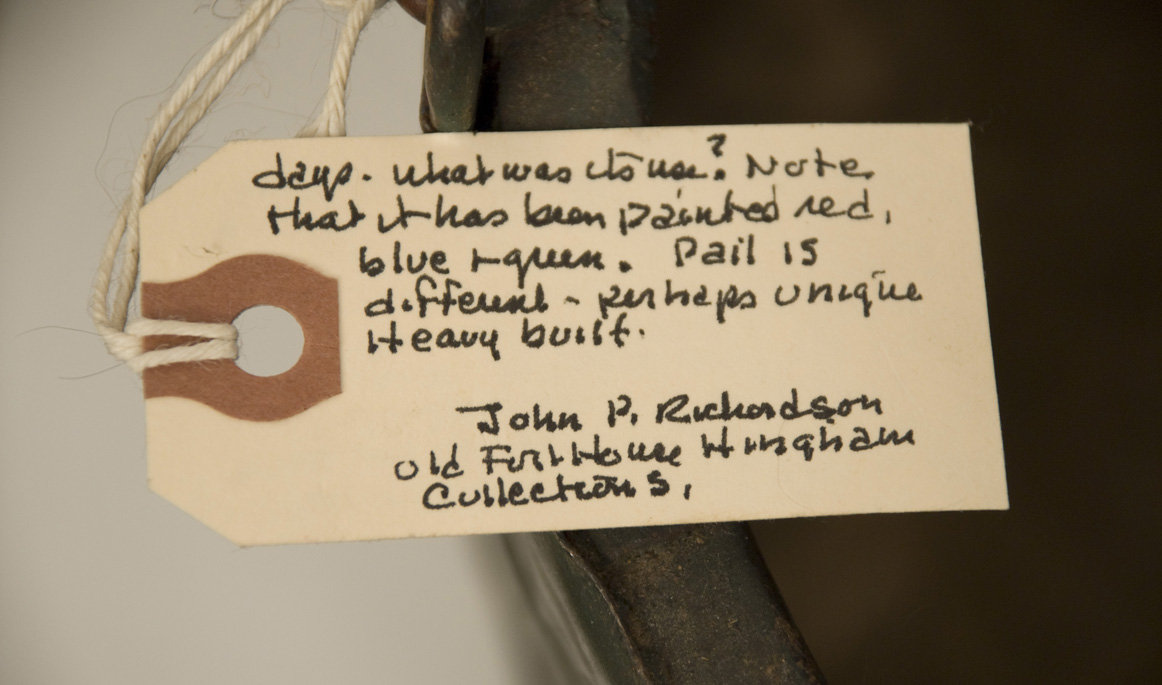 days. What was its use? Note
that it has been painted red,
blue + green. Pail is
different - perhaps unique
Heavy built.
John P. Richardson
Old Fort House Hingham
Collections,